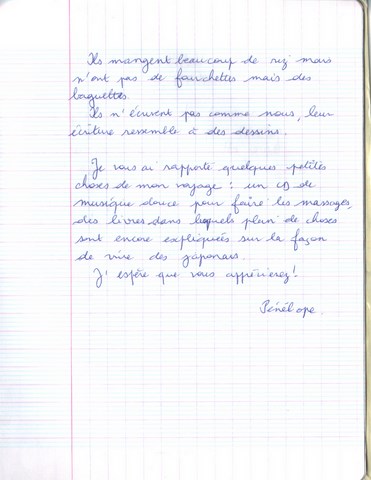 Ils mangent beaucoup de riz mais
n'ont pas de fourchettes mais des
baguettes.
Ils n'écrivent pas comme nous, leur
écriture ressemble à des dessins.
Je vous ai rapporté quelques petites
choses de mon voyage : un CD de
musique douce pour faire les massages,
des livres dans lequels plein de choses
sont encore expliquées sur la façon
de vivre des japonais.
J'espère que vous apprécierez!
Pénélope.